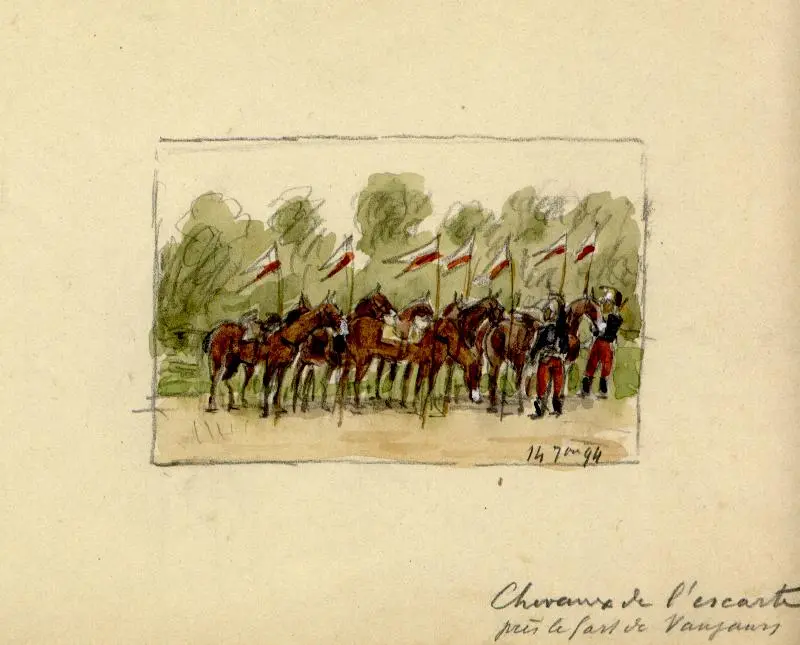 14 7bre 94
Chevaux de l'escorte
près le fort de Vaujours